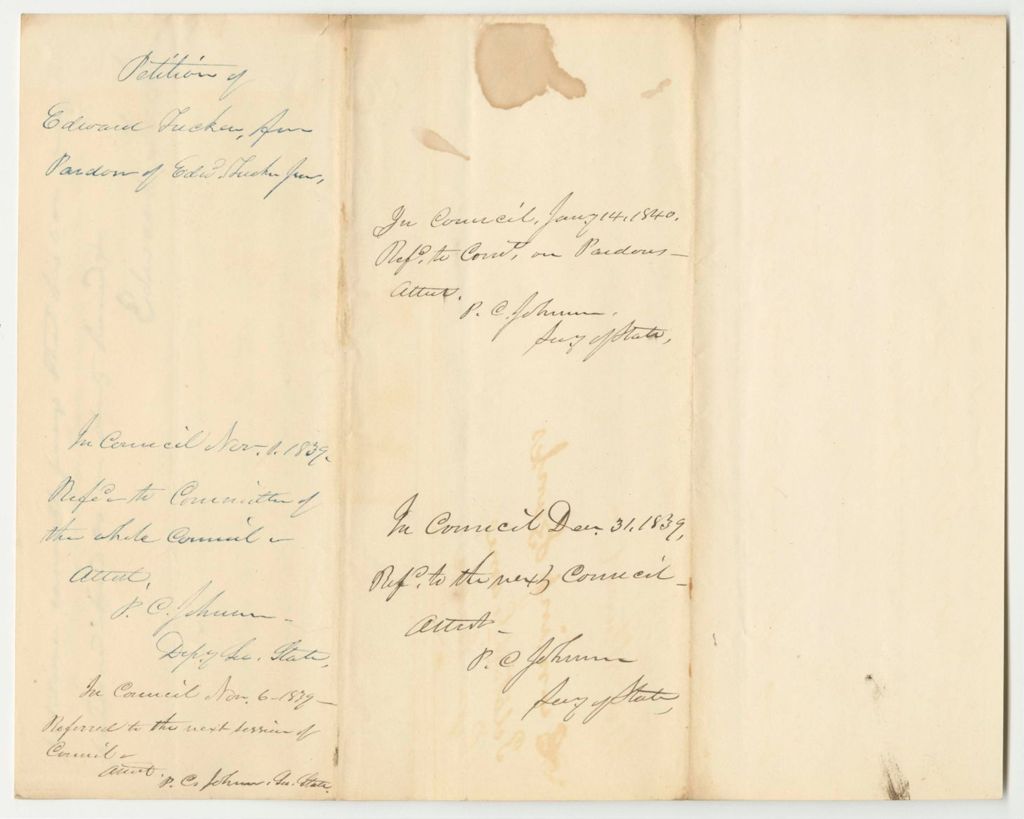 Petition of
Edward Tucker, for
Pardon of Edwd. Tucker Junr,
In Council Nov. 1. 1839.
Refd. to Committee of
the whole Council -
Attest,
P. C. Johnson -
Depy Sec. State,
In Council Nov. 6 - 1839 -
Referred to the next session of
Council -
Attest. P. C. Johnson. Sec. State.
In Council, Jany 14, 1840.
Refd. to Comt. on Pardons -
Attest.
P. C. Johnson.
Secy of State,
In Council Dec. 31. 1839,
Refd. to the next Council -
Attest -
P. C Johnson
Secy of State,